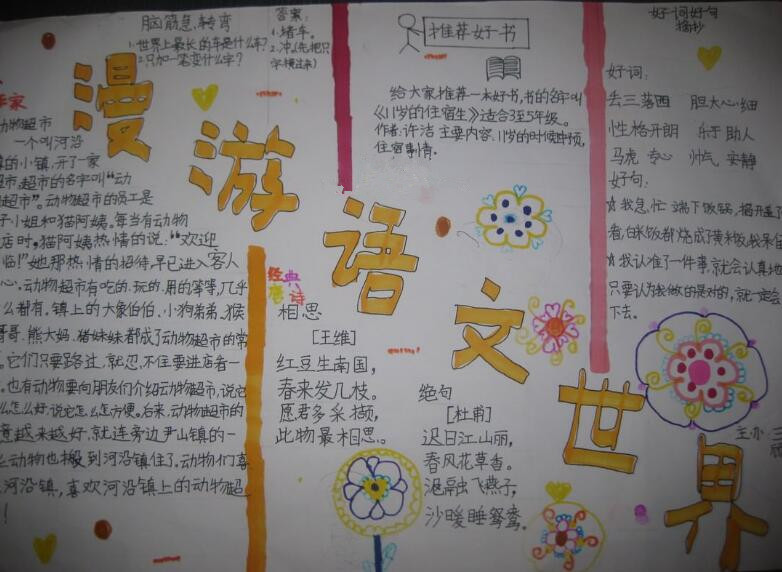 漫游语文世界
脑筋急转弯
1.世界上最长的车是什么车?
2.只加一笔变什么字?
答案:
1.堵车。
2.冲(先把只
字横过来)
作家
动物超市
一个叫河沿
镇的小镇,开了一家
超市,超市的名字叫“动
物超市”。动物超市的员工是
子小姐和猫阿姨。每当有动物
店时,猫阿姨热情的说:“欢迎
临!”她那热情的招待,早已进入客人
心。动物超市有吃的、玩的、用的等等,几乎
么都有。镇上的大象伯伯、小狗弟弟、猴
哥哥、熊大妈、猪妹妹都成了动物超市的常
。它们只要路过,就忍不住要进店看一
。也有动物要向朋友们介绍动物超市,说它
么怎么好,说它怎么怎方便。后来,动物超市的
意越来越好,就连旁边尹山镇的一
动物也搬到河沿镇住了。动物们喜
河沿镇,喜欢河沿镇上的动物超
!
经典
唐诗
相思
[王维]
红豆生南国,
春来发几枝。
愿君多采撷,
此物最相思。
绝句
[杜甫]
迟日江山丽,
春风花草香。
泥融飞燕子,
沙暖睡鸳鸯。
推荐好书
给大家推荐一本好书,书的名字叫
《11岁的住宿生》适合3至5年级。
作者:许洁 主要内容:11岁的时候申琼,
住宿事情。
好词好句
摘抄
好词:
丢三落四 胆大心细
性格开朗 乐于助人
马虎 专心 帅气 安静
好句:
☆我急忙端下饭锅,揭开盖
看,白米饭都烧成了黄米饭,我呆
☆我认准了一件事,就会认真地
只要认为我做的是对的,就一定会
下去。
三